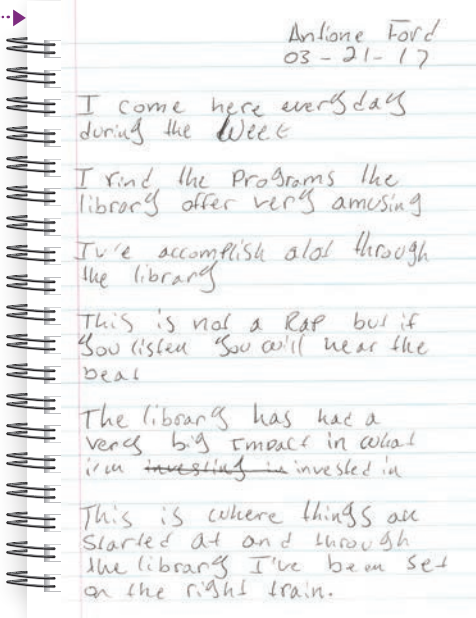 Antione Ford
03-21-17
I come here every day
during the Week
I find the Programs the
library offer very amusing
Iv'e accomplish alot through
the library
This is not a Rap but if
you listen you will hear the
beat
The library has had a
very big Impact in what
i'm investing in invested in
This is where things all
Started at and through
the library I've been set
on the right train.